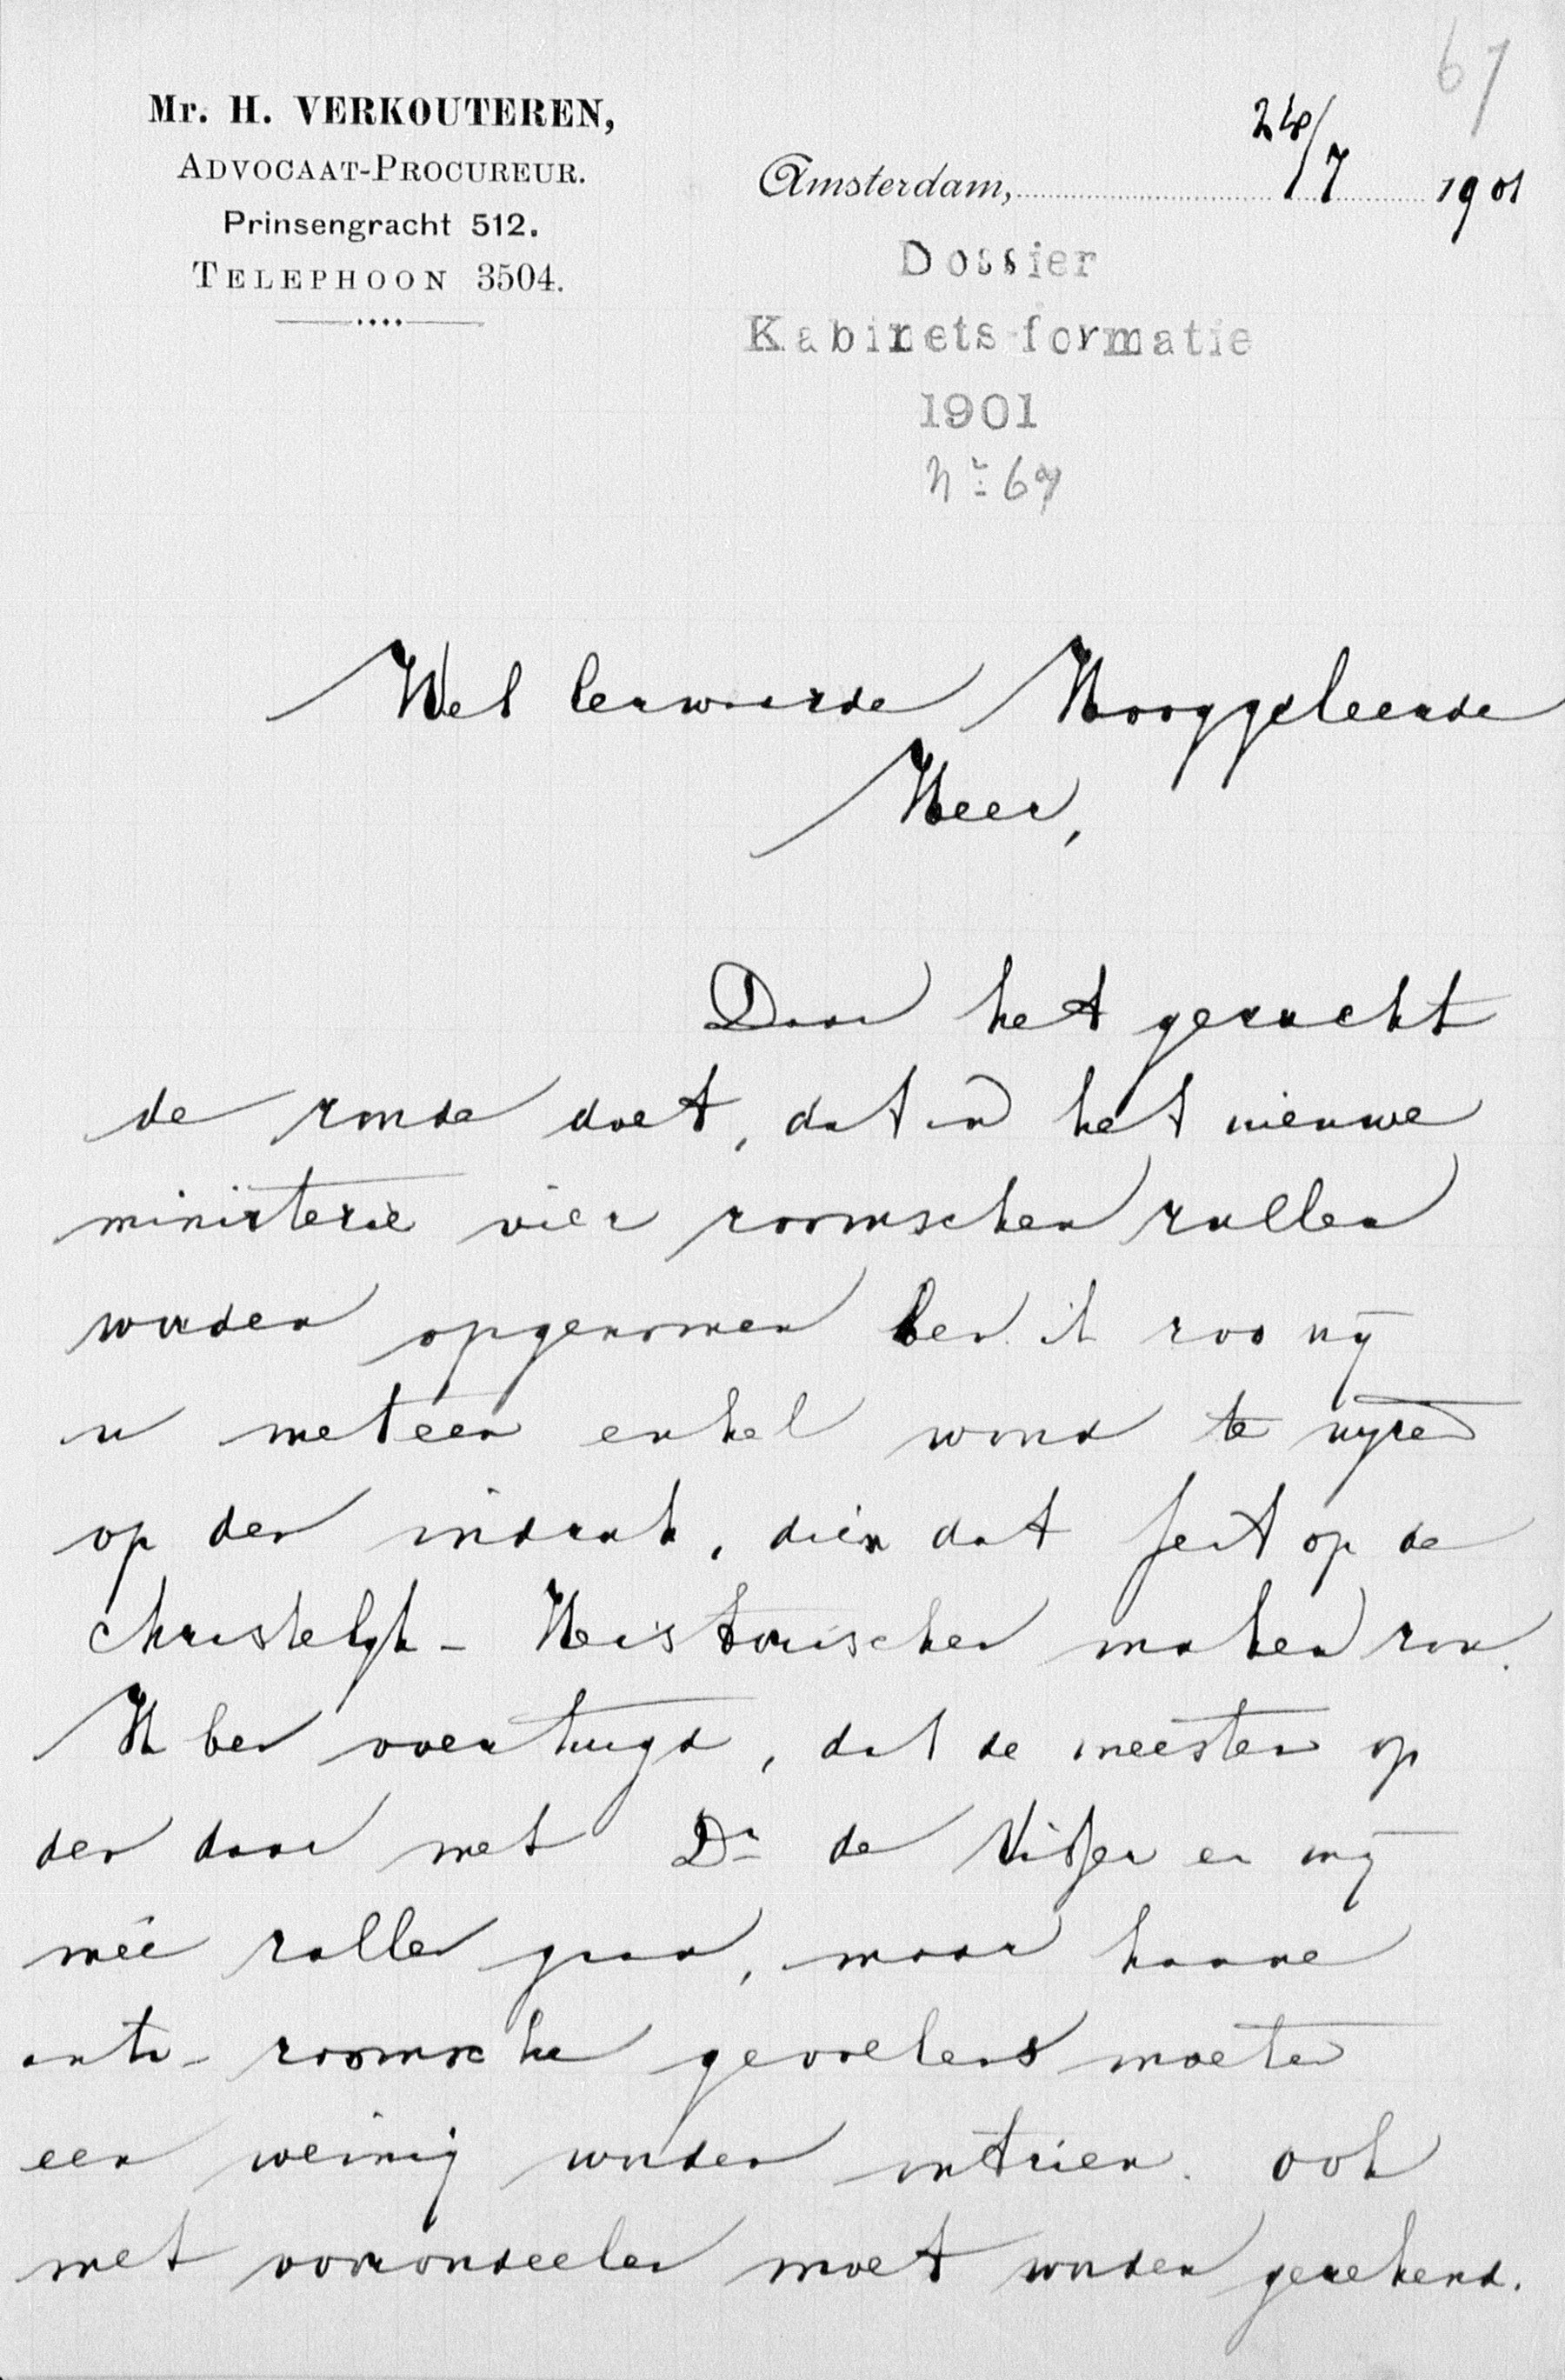 67
Mr. H. VERKOUTEREN,
ADVOCAAT-PROCUREUR.
Prinsengracht 512.
TELEPHOON 3504.
Amsterdam, 24/7 1901
Dossier
Kabinets formatie
1901
Nr 67
Wel Eerwaarde Hooggeleerde
Heer,
Daar het gerucht
de ronde doet, dat in het nieuwe
ministerie vier roomschen zullen
worden opgenomen ben ik zoo vrij
u met een enkel woord te wijzen
op den indruk, dien dat feit op de
Christelijk-Historischen maken zou.
Ik ben overtuigd, dat de meesten op
den duur met Dr de Visser en mij
meê zullen gaan, maar hunne
anti-roomsche gevoelens moeten
een weinig worden ontzien. Ook
met vooroordeelen moet worden gerekend.